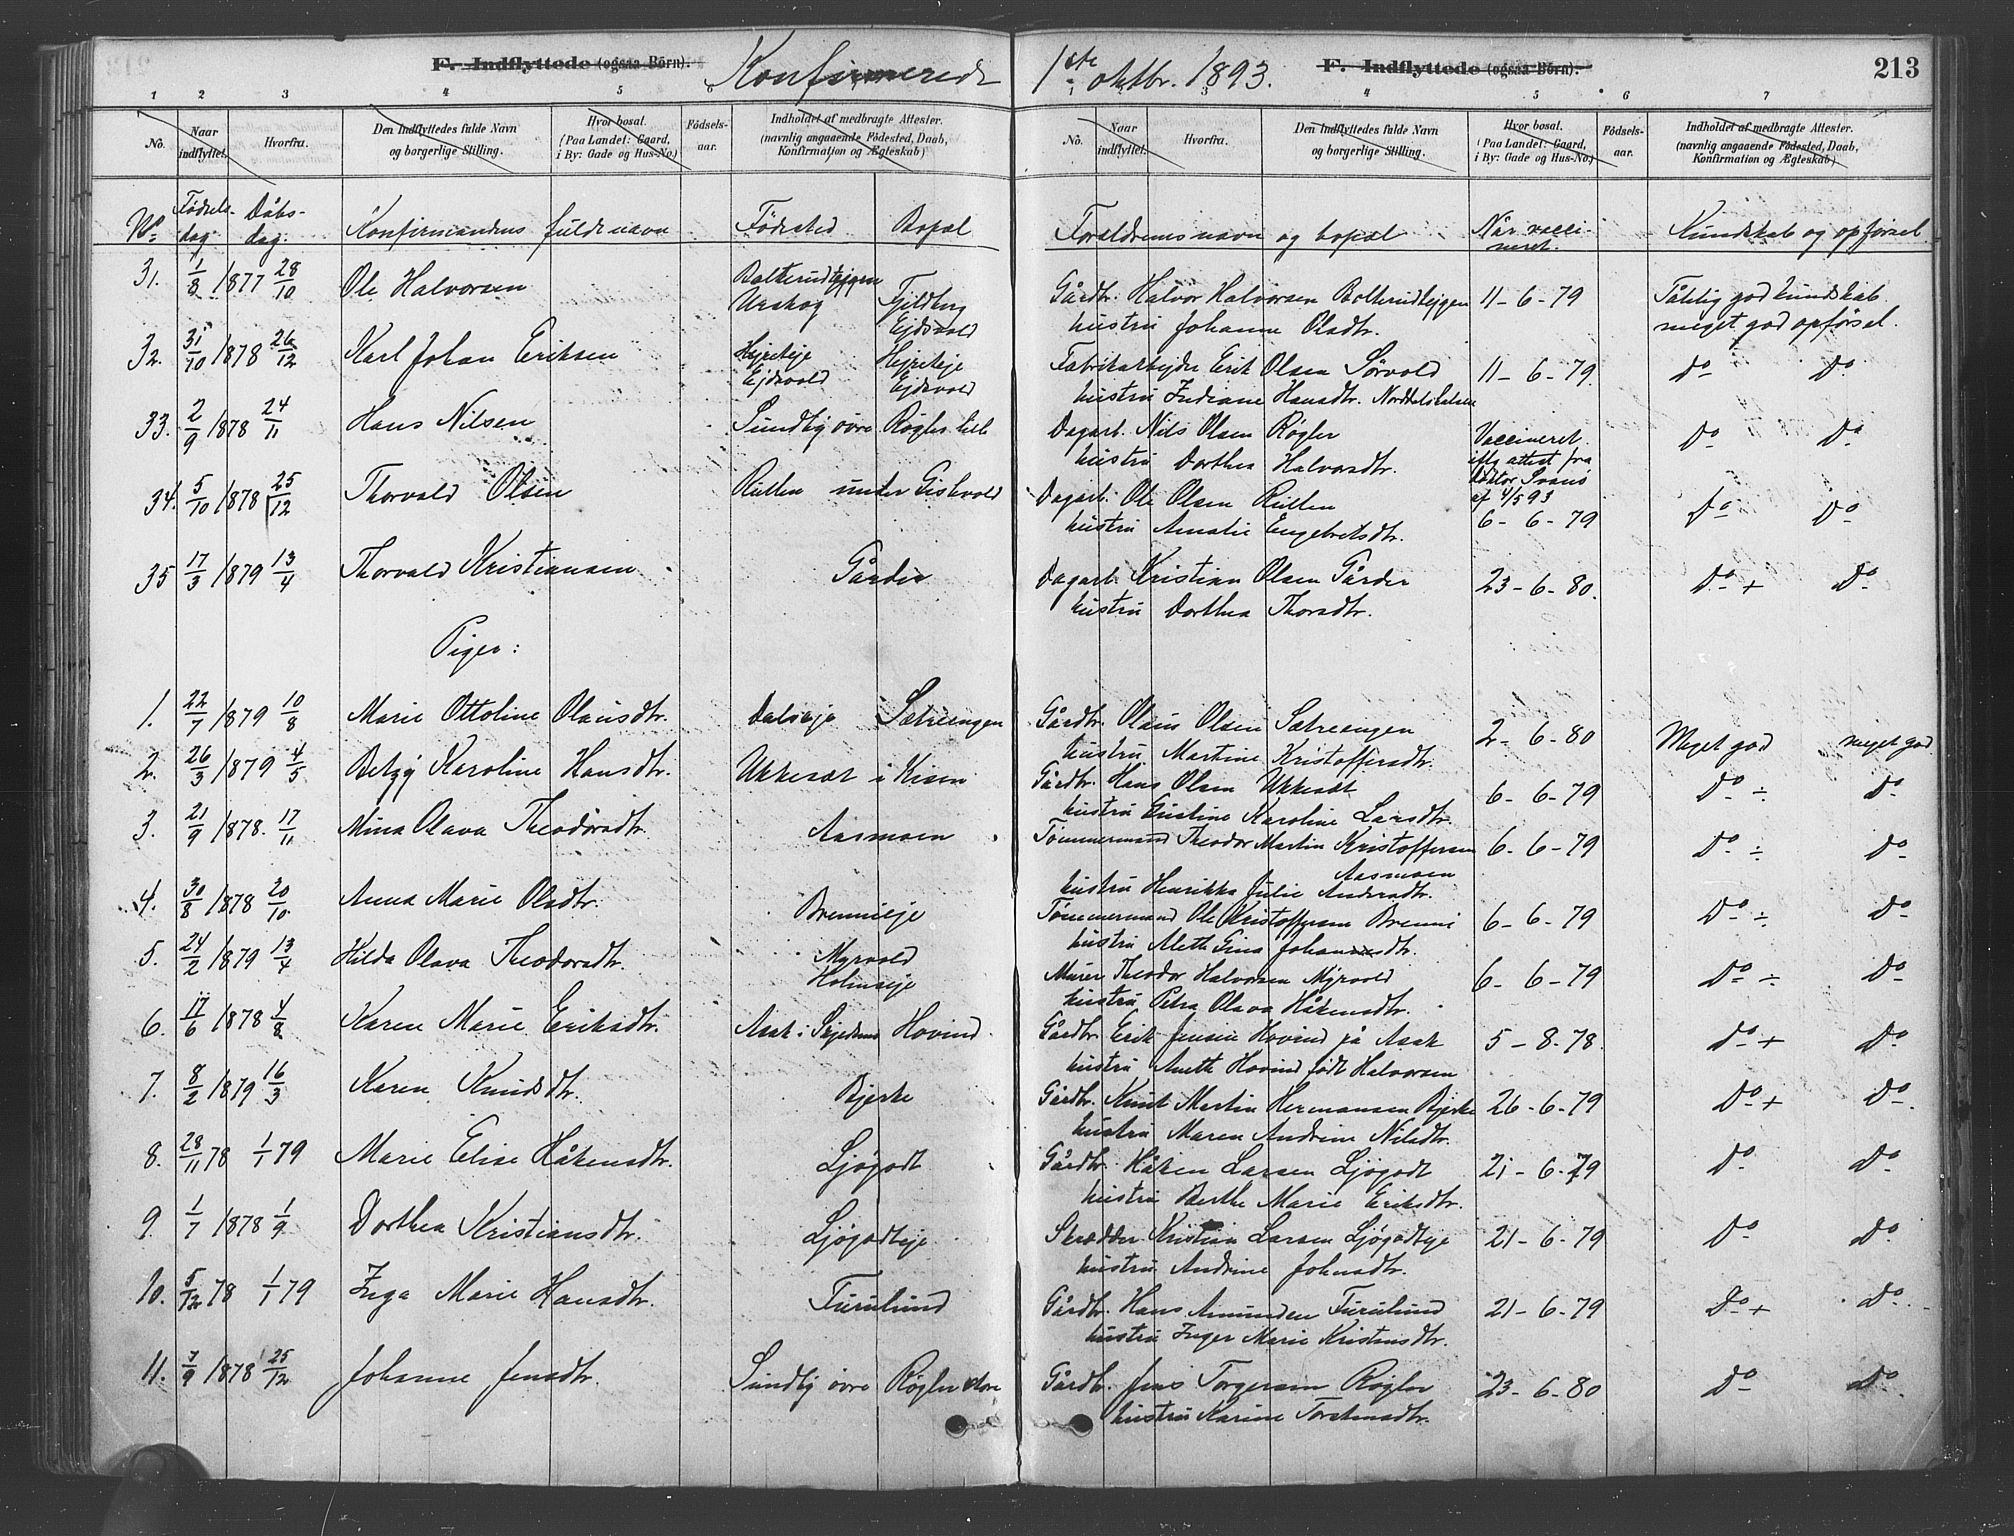 F. Indflyttede (ogsaa Börn).
Konfirmerede 1ste oktbr. 1893.
F. Indflyttede (ogsaa Börn).
213
1 2 3 4 5 6
3 4 5 6 7
No. Naar indflyttet. Hvorfra. Den Indflyttedes fulde Navn og borgerlige Stilling. Hvor bosat. (Paa Landet: Gaard, i By: Gade og Hus-No.) Födsels-aar. Indholdet af medbragte Attester. (navnlig angaaende Födested, Daab, Konfirmation og Ægteskab)
No. Naar indflyttet. Hvorfra. Den Indflyttedes fulde Navn og borgerlige Stilling. Hvor bosat. (Paa Landet: Gaard, i By: Gade og Hus-No.) Födsels-aar. Indholdet af medbragte Attester. (navnlig angaaende Födested, Daab, Konfirmation og Ægteskab)
No. Fødselsdag Dåbsdag. Konfirmandens fulde navn Fødested Bopæl Forældrenes navn og bopæl Når vaccineret. Kundskab og opførsel.
31. 1/8 1877 28/10 Ole Halvorsen Bolterudejgen Urskog Fjeldberg Ejdsvold Gårdbr. Halvor Halvorsen Bolterudejgen 11-6-79 Tålelig god kundskab
hustru Johanne Olsdtr. meget god opførsel.
32. 31/10 1878 26/12 Karl Johan Eriksen Hejreteje Ejdsvold Hejreteje Ejdsvold Fabrikarbejder Erik Olsen Sørvold 11-6-79. Do Do
hustru Indiane Hansdtr.
33. 2/9 1878 24/11 Hans Nilsen Sundby øvre Røgler lille Dagarb. Nils Olsen Røgler Vaccineret
hustru Dorthea Halvorsdtr. eftr attest fra doktor af 4/5 93 Do Do
34. 5/10 1878 25/12 Thorvald Olsen Rullen under Gislevold Dagarb. Ole Olsen Rullen 6-6-79 Do Do
hustru Amalie Engebretsdtr.
35 17/3 1879 13/4 Thorvald Kristiansen Gårder Dagarb. Kristian Olsen Gårder 23-6-80. Do + Do
hustru Dorthea Thorsdtr.
Piger:
1. 22/7 1879 10/8 Marie Ottoline Olausdtr. Dalseje Sætreengen Gårdbr. Olaus Olsen Sætreengen 2-6-80 Meget god meget god
hustru Martine Kristoffersdtr.
2. 26/3 1879 4/5 Betzy Karoline Hansdtr. Ukkesæt i Kisen Gårdbr. Hans Olsen Ukkesæt 6-6-79 Do ÷ Do
hustru Gustine Karoline Larsdtr.
3. 21/9 1878. 17/11 Mina Olava Theodorsdtr. Aasmoen Tømmermand Theodor Martin Kristoffersen Aasmoen 6-6-79 Do ÷ Do
hustru Henrikka Julie Andersdtr.
4. 30/8 1878 20/10 Anna Marie Olsdtr. Brennieje Tømmermand Ole Kristoffersen Brenni 6-6-79 Do ÷ Do
hustru Aleth Gina Johannesdtr.
5. 24/2 1879 13/4 Hilda Olava Theodorsdtr. Myrvold Holmseje Murer Theodor Halvorsen Myrvold 6-6-79 Do ÷ Do
hustru Petra Olava Håkensdtr.
6. 17/6 1878 4/8 Karen Marie Eriksdtr. Asak i Skjedsmo Hovind. Gårdbr. Erik Jensen Hovind på Asak 5-8-78. Do + Do
hustru Aneth Hovind født Halvorsen
7. 8/2 1879 16/3 Karen Knudsdtr. Bjerke Gårdbr. Knut Martin Hermansen Bjerke 26-6-79 Do + Do
hustru Maren Andrine Nilsdtr.
8. 28/11 78 1/1 79 Marie Elise Håkensdtr. Ljøgodt Gårdbr. Håken Larsen Ljøgodt 21-6-79 Do Do
hustru Berthe Marie Eriksdtr.
9. 1/7 1878 1/9 Dorthea Kristiansdtr. Ljøgodteje Skrædder Kristian Larsen Ljøgodteje 21-6-79 Do Do
hustru Andrine Johnsdtr.
10. 5/12 78 1/1 79 Inga Marie Hansdtr. Furulund Gårdbr. Hans Amundsen Furulund 21-6-79 Do + Do
hustru Inger Marie Kristensdtr.
11. 7/9 1878 25/12 Johanne Jensdtr. Sundby øvre Røgler store Gårdbr. Jens Torgersen Røgler 23-6-80 Do Do
hustru Karine Torstensdtr.